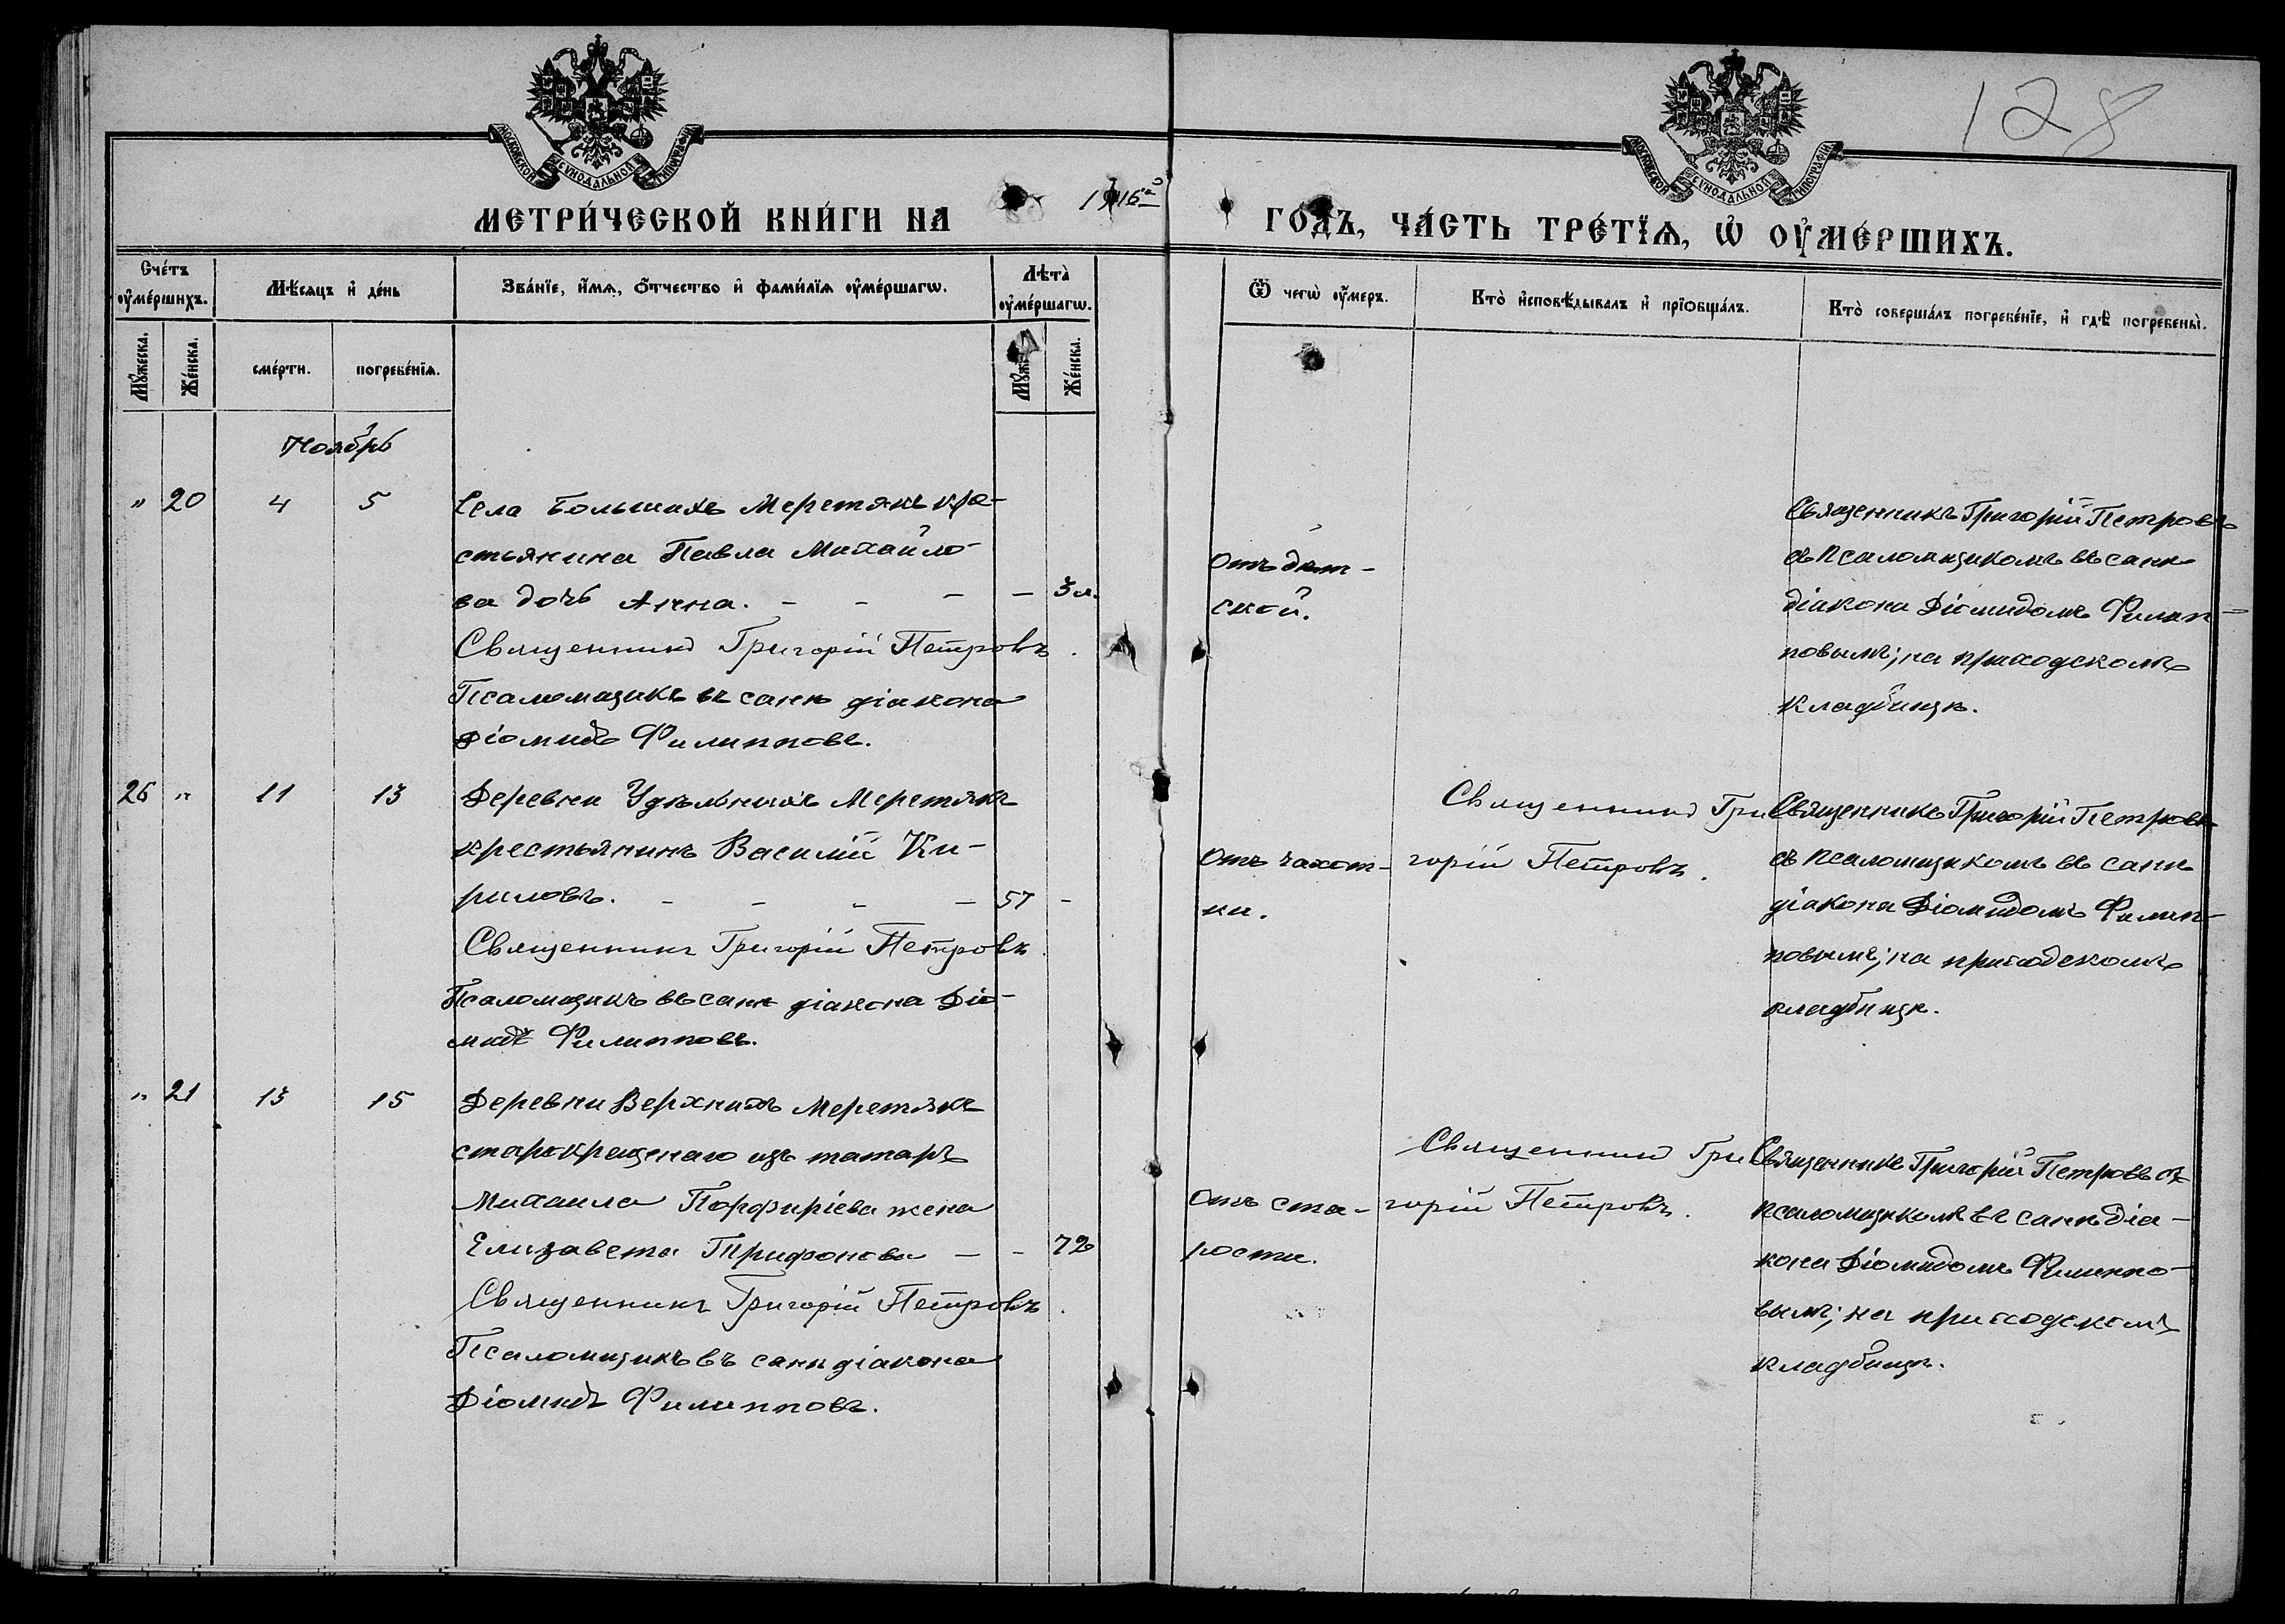 128
МОСКОВСКОЙ СѴНОДАЛЬНОЙ ТИПОГРАФІИ
МОСКОВСКОЙ СѴНОДАЛЬНОЙ ТИПОГРАФІИ
МЕТРИ́ЧЕСКОЙ КНИ́ГИ НА 1916 ГО́ДЪ, ЧА́СТЬ ТРЕ́ТЇѦ, Ѡ҆ ОУ҆МЕ́РШИХЪ.
Сче́тъ оу҆ме́ршихъ.
Мѣ́сяцъ и҆ де́нь
Зва́нїе, и҆́мѧ, ѻ҆́тчество и҆ фами́лїѧ оу҆ме́ршагѡ.
Лѣта̀ оу҆ме́ршагѡ.
Ѿ чегѡ̀ оу҆́меръ.
Кто̀ и҆сповѣ́дывалъ и҆ прїѻбща́лъ.
Кто̀ соверша́лъ погребе́нїе, и҆ гдѣ̀ погребены̀.
Му́жеска.
Же́нска.
сме́рти.
погребе́нїѧ.
Же́нска.
Ноябрь
" 20 4 5
Села Большихъ Меретякъ кре-
стьянина Павла Михайло-
ва дочь Анна. - - - - 3 л.
Священникъ Григорій Петровъ.
Псаломщикъ въ санѣ діакона
Діомидъ Филипповъ.
Отъ дѣт-
ской.
Священникъ Григорій Петровъ
съ псаломщикомъ въ санѣ
діакона Діомидомъ Филип-
повымъ; на приходскомъ
кладбищѣ.
26 " 11 13
Деревни Удѣльныхъ Меретякъ
крестьянинъ Василій Ки-
риловъ. - - - - 57 -
Священникъ Григорій Петровъ.
Псаломщикъ въ санѣ діакона Діо-
мидъ Филипповъ.
Отъ чахот-
ки.
Священникъ Гри
горій Петровъ.
Священникъ Григорій Петровъ
съ псаломщикомъ въ санѣ
діакона Діомидомъ Филип-
повымъ; на приходскомъ
кладбищѣ.
" 21 13 15
Деревни Верхнихъ Меретякъ
старокрещенаго изъ татаръ
Михаила Порфиріева жена
Елизавета Трифонова - - 72
Священникъ Григорій Петровъ.
Псаломщикъ въ санѣ діакона
Діомидъ Филипповъ.
Отъ ста-
рости.
Священникъ Гри
горій Петровъ.
Священникъ Григорій Петровъ съ
псаломщикомъ въ санѣ діа-
кона Діомидомъ Филиппо-
вымъ; на приходскомъ
кладбищѣ.